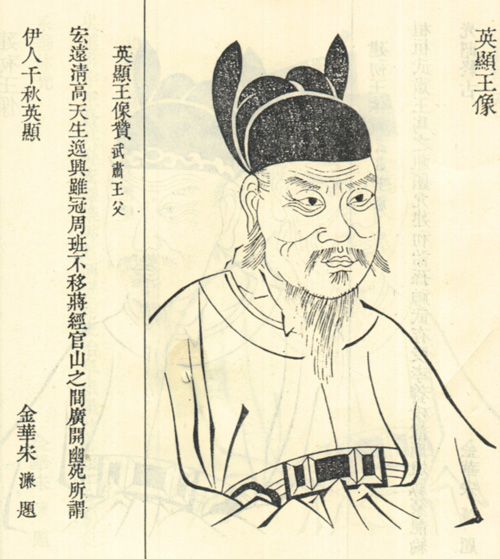 英顯王像
英顯王像贊 武肅王父
宏遠清高天生逸興雖冠周班不移蔣經官山之間廣開幽苑所謂
伊人千秋英顯
金華宋濂題